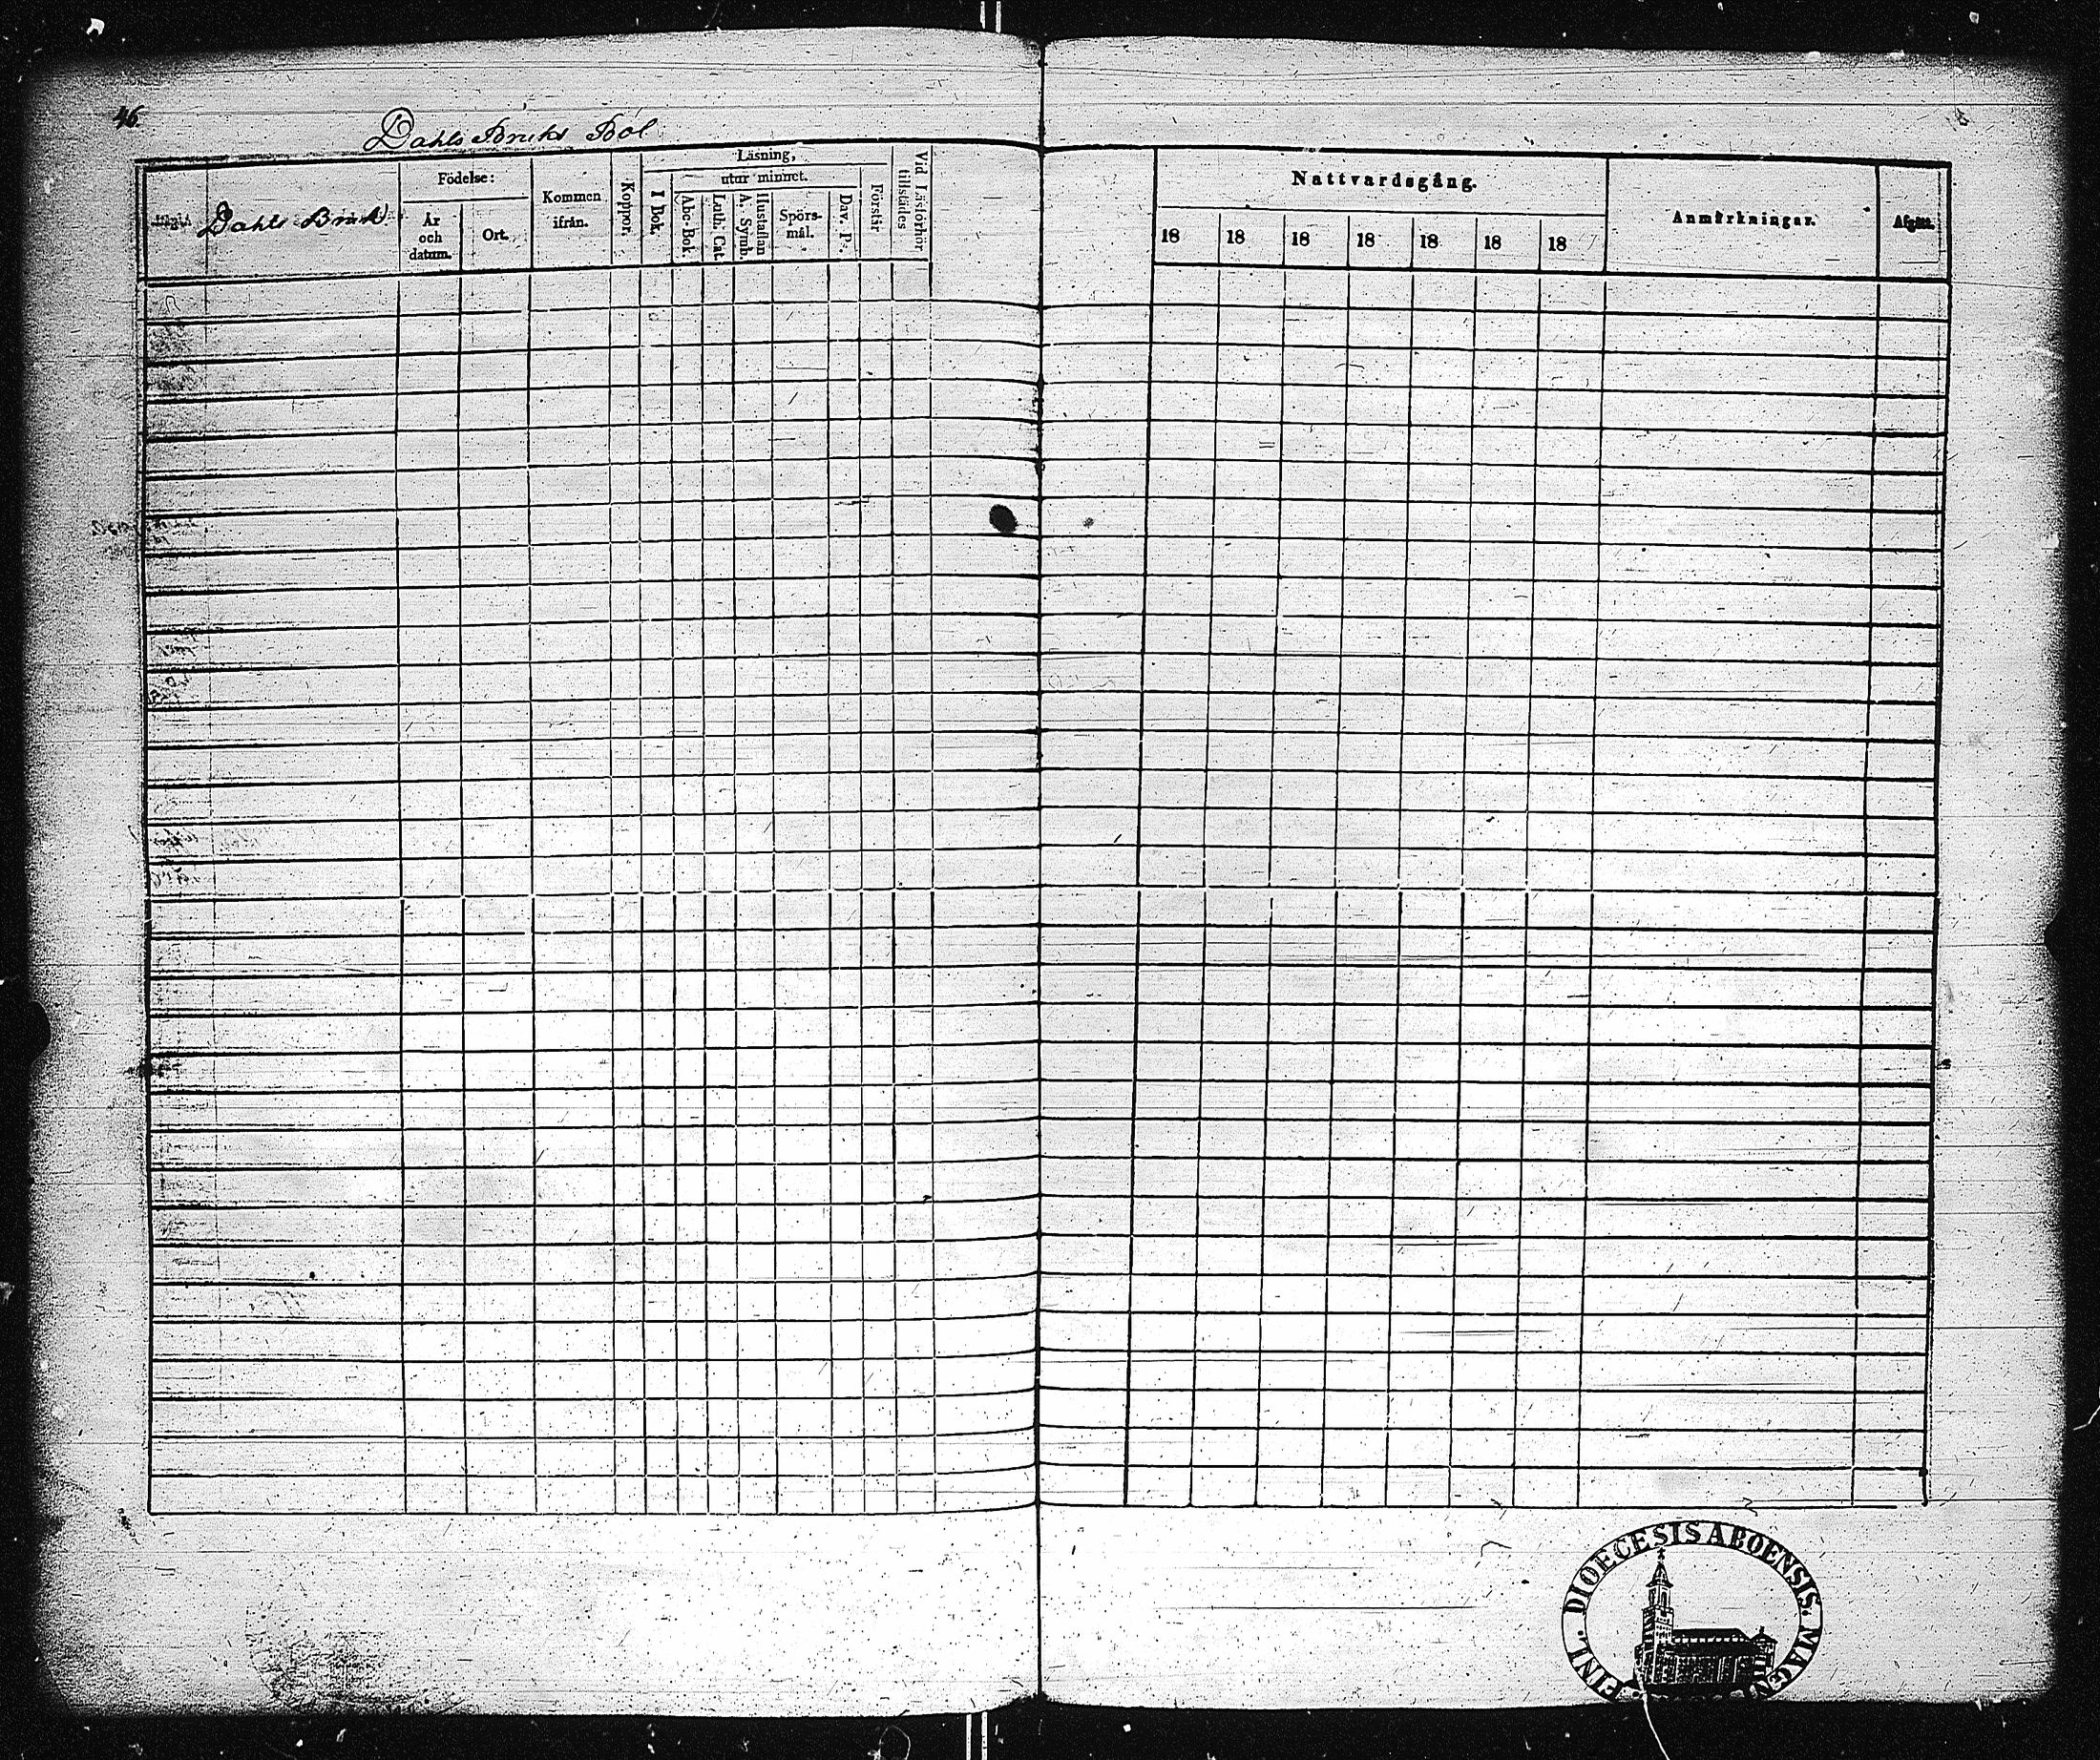 46.
Dahls Bruks Bol
Dahls Bruk.
Födelse:
År och datum.
Ort.
Kommen ifrån.
Koppor.
Läsning,
utur minnet.
I Bok.
Abc-Bok.
Luth. Cat.
Hustaflan A. Symb.
Spörs-mål.
Dav. P.
Förstår
Vid Läsförhör tillstädes
Nattvardsgång.
18 18 18 18 18 18 18
Anmärkningar.
DIOECESIS ABOENSIS.